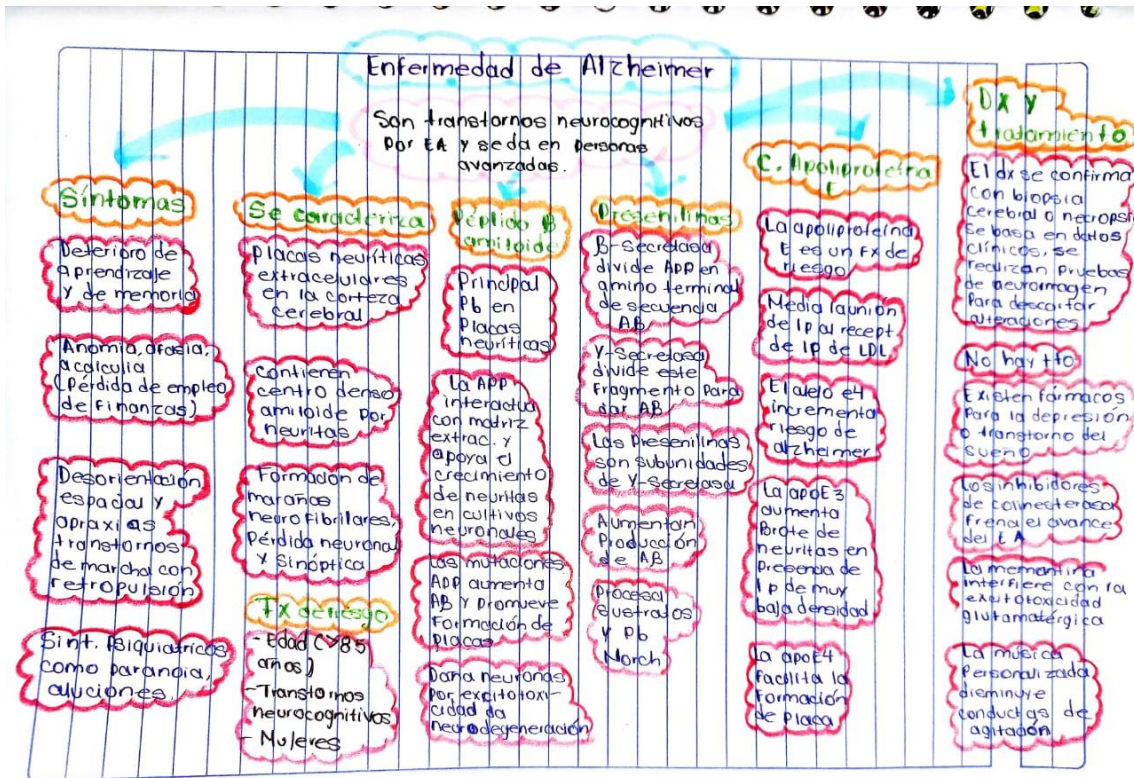 Enfermedad de Alzheimer
Son transtornos neurocognitivos
por EA y se da en personas
avanzadas.
Síntomas
Deterioro de
aprendizaje
y de memoria
Anomia, afasia,
acalculia
(Pérdida de empleo
de finanzas)
Desorientación
espacial y
apraxias
transtornos
de marcha con
retropulsión
Sint. Psiquiatricos
como paranoia,
aluciones.
Se caracteriza
Placas neuríticas
extracelulares
en la corteza
cerebral
Contienen
centro denso
amiloide por
neuritas
Formación de
marañas
neurofibrilares,
Pérdida neuronal
y sináptica
Fx de riesgo
- Edad (>85
años)
- Transtornos
neurocognitivos
- Mujeres
Péptido B
amiloide
Principal
Pb en
Placas
neuríticas
La APP
interactua
con matriz
extrac. y
apoya el
crecimiento
de neuritas
en cultivos
neuronales
Las mutaciones
APP aumenta
AB y promueve
Formación de
Placas
Dana neuronas
por excitotoxi-
cidad da
neurodegeneración
Presenilinas
B-Secrelasa
divide APP en
amino terminal
de secuencia
AB
Y-Secrelasa
divide este
fragmento para
dar AB
Las Presenilinas
son subunidades
de Y-Secrelasa
Aumentan
Producción
de AB
Procesa
sustratos
y Pb
Norch
C. Apoliproteína
E
La apoliproteína
E es un Fx de
riesgo
Media la unión
de lp al recept.
de lp de LDL
El alelo e4
incrementa
riesgo de
alzheimer
La apoE3
aumenta
brote de
neuritas en
Presencia de
lp de muy
baja densidad
La apoE4
Facilita la
Formación
de Placa
DX y
tratamiento
El dx se confirma
con biopsia
cerebral o necropsia
Se basa en datos
clínicos, se
realizan pruebas
de neuroimagen
Para descartar
alteraciones
No hay tto
Existen fármacos
Para la depresión
o transtorno del
sueno
Los inhibidores
de colinesterasa
Frena el avance
del EA
La memantina
interfiere con la
exitotoxicidad
glutamatérgica
La música
Personalizada
disminuye
conductas de
agitación